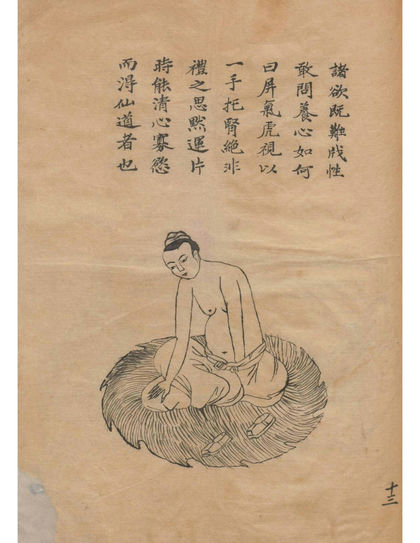 諸欲既難戕性
敢問養心如何
曰屏氣虎視以
一手托腎絶非
禮之思黙運片
時能清心寡慾
而得仙道者也
十三